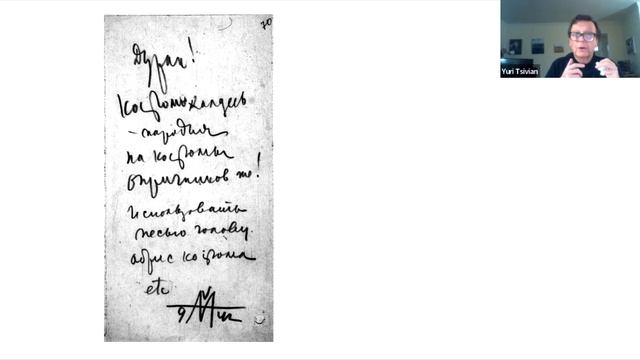 70
Дурак!
Костюм халдеев
– пародия
на костюмы
опричников же!
Использовать
песью голову.
абрис костюма
etc
9 42
Yuri Tsivian